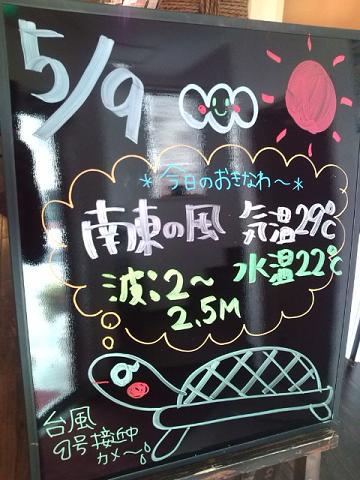 5/9
*今日のおきなわ～*
南東の風 気温29℃
波:2～ 水温22℃
2.5M
台風
9号接近中
カメ～